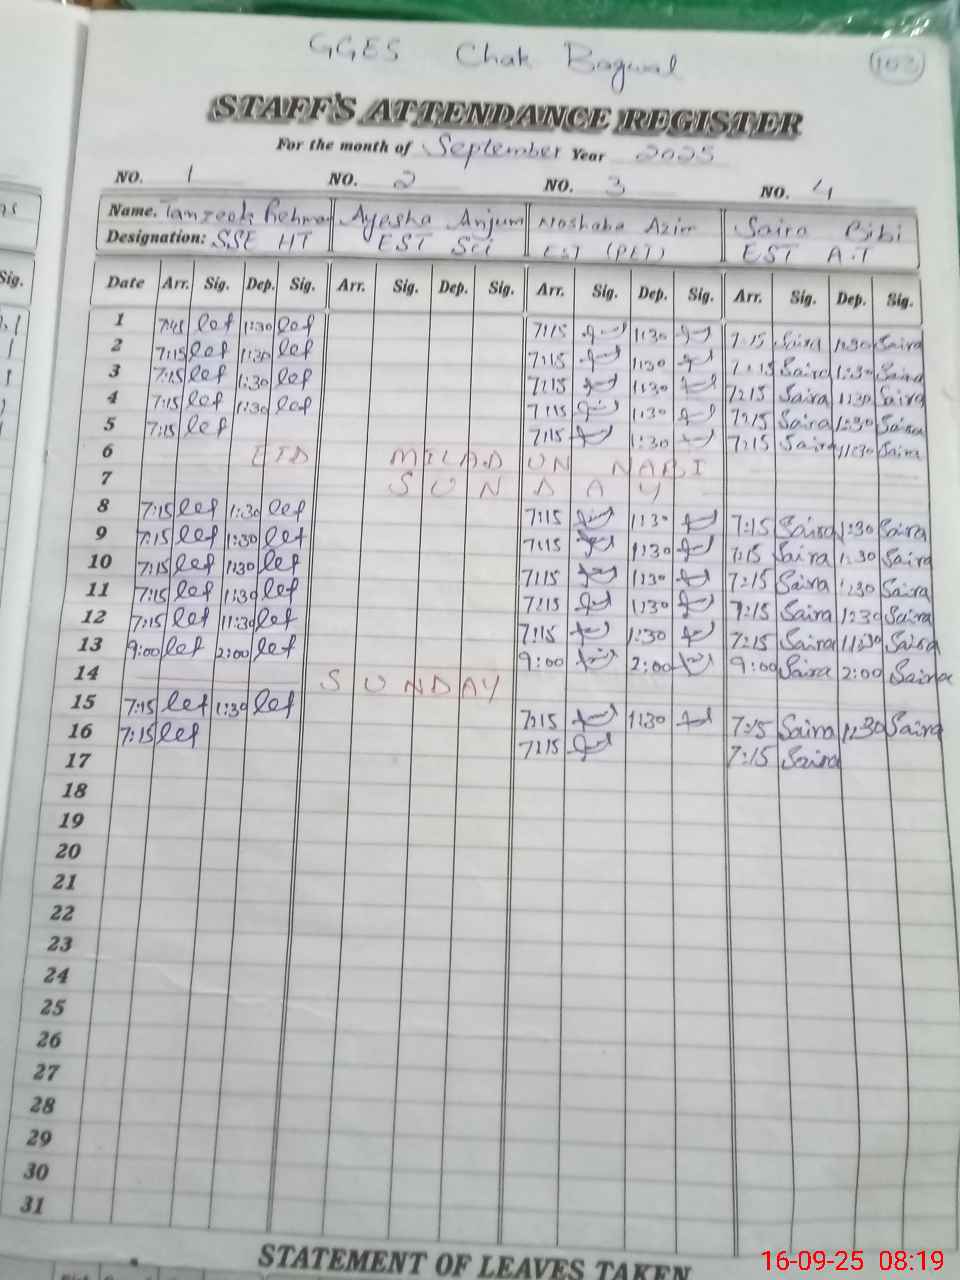 GGES Chak Bagwal
102
STAFF'S ATTENDANCE REGISTER
For the month of September Year 2025
NO. 1 NO. 2 NO. 3 NO. 4
Name. Tanzeela Rehman Ayesha Anjum Noshaba Azim Saira Bibi
Designation: SSE HT EST Sci EST (PET) EST A.T
Date Arr. Sig. Dep. Sig. Arr. Sig. Dep. Sig. Arr. Sig. Dep. Sig. Arr. Sig. Dep. Sig.
1 7:45 1:30 7:15 1:30 7:15 Saira 1:30 Saira
2 7:15 1:30 7:15 1:30 7:15 Saira 1:30 Saira
3 7:15 1:30 7:15 1:30 7:15 Saira 1:30 Saira
4 7:15 1:30 7:15 1:30 7:15 Saira 1:30 Saira
5 7:15 7:15 1:30 7:15 Saira 1:30 Saira
6 EID MILAD UN NABI
7 SUNDAY
8 7:15 1:30 7:15 1:30 7:15 Saira 1:30 Saira
9 7:15 1:30 7:15 1:30 7:15 Saira 1:30 Saira
10 7:15 1:30 7:15 1:30 7:15 Saira 1:30 Saira
11 7:15 1:30 7:15 1:30 7:15 Saira 1:30 Saira
12 7:15 1:30 7:15 1:30 7:15 Saira 1:30 Saira
13 9:00 2:00 9:00 2:00 9:00 Saira 2:00 Saira
14 SUNDAY
15 7:15 1:30 7:15 1:30 7:15 Saira 1:30 Saira
16 7:15 7:15 7:15 Saira
17
18
19
20
21
22
23
24
25
26
27
28
29
30
31
STATEMENT OF LEAVES TAKEN
16-09-25 08:19